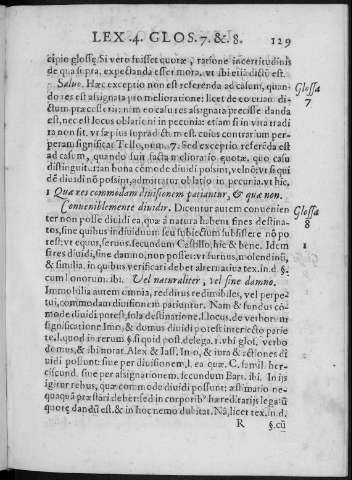 LEX .4. GLOS. 7. & 8. 129
cipio glossę. Si vero fuisset quotæ, ratione incertitudinis
de qua si pra. expectanda esset mora. vt ibi etiã dictũ est.
Saluo. Hæc exceptio non est referēda ad casum, quan-
do res est assignata pro melioratione: licet de eo etiam di-
ctum præcesserit: nam eo casu res assignata præcise danda
est, nec est locus oblationi in pecunia: etiam si in vita tradi
ta non sit. vt sæpius supra dictũ est. cuius contrarium per-
peram significat Tello, num. 7. Sed exceptio referēda est
ad casum, quando fuit facta melioratio quotæ, quo casu
distinguit. rian bona cōmode diuidi possint, vel nō: vt si qui
dē diuidi nō possint, admittatur oblatio in pecunia. vt hic.
1 Quæ res commodam diuisionem patiantur, & quæ non.
Conuenibiliter diuidi. Dicuntur autem conuenien
ter non posse diuidi ea, quæ à natura habent fines destina-
tos, sine quibus indiuiduum seu subiectum subsistere nō po
test: vt equus, seruus. secundum Castillo, hic & bene. Idem
si res diuidi, sine damno, non posset: vt furnus, molendinũ,
& similia. in quibus verificari debet alternatiua tex. in d. §.
cum bonorum. ibi. Vel naturaliter, vel sine damno.
Immobilia autem omnia, redditus redimibiles, vel perpe-
tui, commodam diuisionem patiuntur. Nam & fundus cō-
mode diuidi potest, sola destinatione. l. locus, de verborum
significatione. Imo, & domus diuidi potest interiecto parie
te. l. quod in rerum §. si quid post. delega. 1. vbi glos. verbo
domus, & ibi notat. Alex & Iass. In o, & iura & actiones di
uidi possunt: siue per diuisionem, l. ea quæ. C. famil. her-
ciscund. siue per assignationem. secundum Bart. ibi. In iis
igitur rebus, quæ commode diuidi possunt: æstimatio ne-
quaquã præstari debet: sed in corporibꝰ hæreditariis lega tũ
quotę dandũ est. & in hoc nemo dubitat. Nã, licet tex. in d.
R §. cũ
Glossa
7
Glossa
8
1